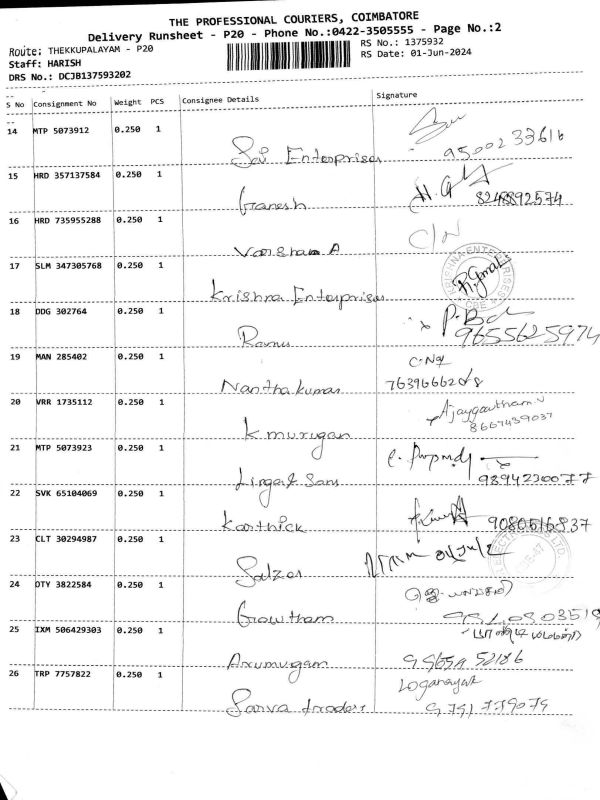 THE PROFESSIONAL COURIERS, COIMBATORE
Delivery Runsheet - P20 - Phone No.:0422-3505555 - Page No.:2
Route: THEKKUPALAYAM - P20
RS No.: 1375932
Staff: HARISH
RS Date: 01-Jun-2024
DRS No.: DCJB137593202
S No Consignment No Weight PCS Consignee Details Signature
14 MTP 5073912 0.250 1
Sai Enterprises 9500233616
15 HRD 357137584 0.250 1
Ganesh 8248892574
16 HRD 735955288 0.250 1 C/N
Varshan A
17 SLM 347305768 0.250 1
Krishna Enterprises
18 DDG 302764 0.250 1
Ramu 9655625974
19 MAN 285402 0.250 1
Nanthakumar
20 VRR 1735112 0.250 1 Ajaygautham.V
K murugan 8667439037
21 MTP 5073923 0.250 1
Linga & Sons 9894230077
22 SVK 65104069 0.250 1
Karthick 9080516837
23 CLT 30294987 0.250 1
Salzer
24 OTY 3822584 0.250 1
Gowtham
25 IXM 506429303 0.250 1
Arumugam
26 TRP 7757822 0.250 1 Loganayaki
Sarva traders 9791779079